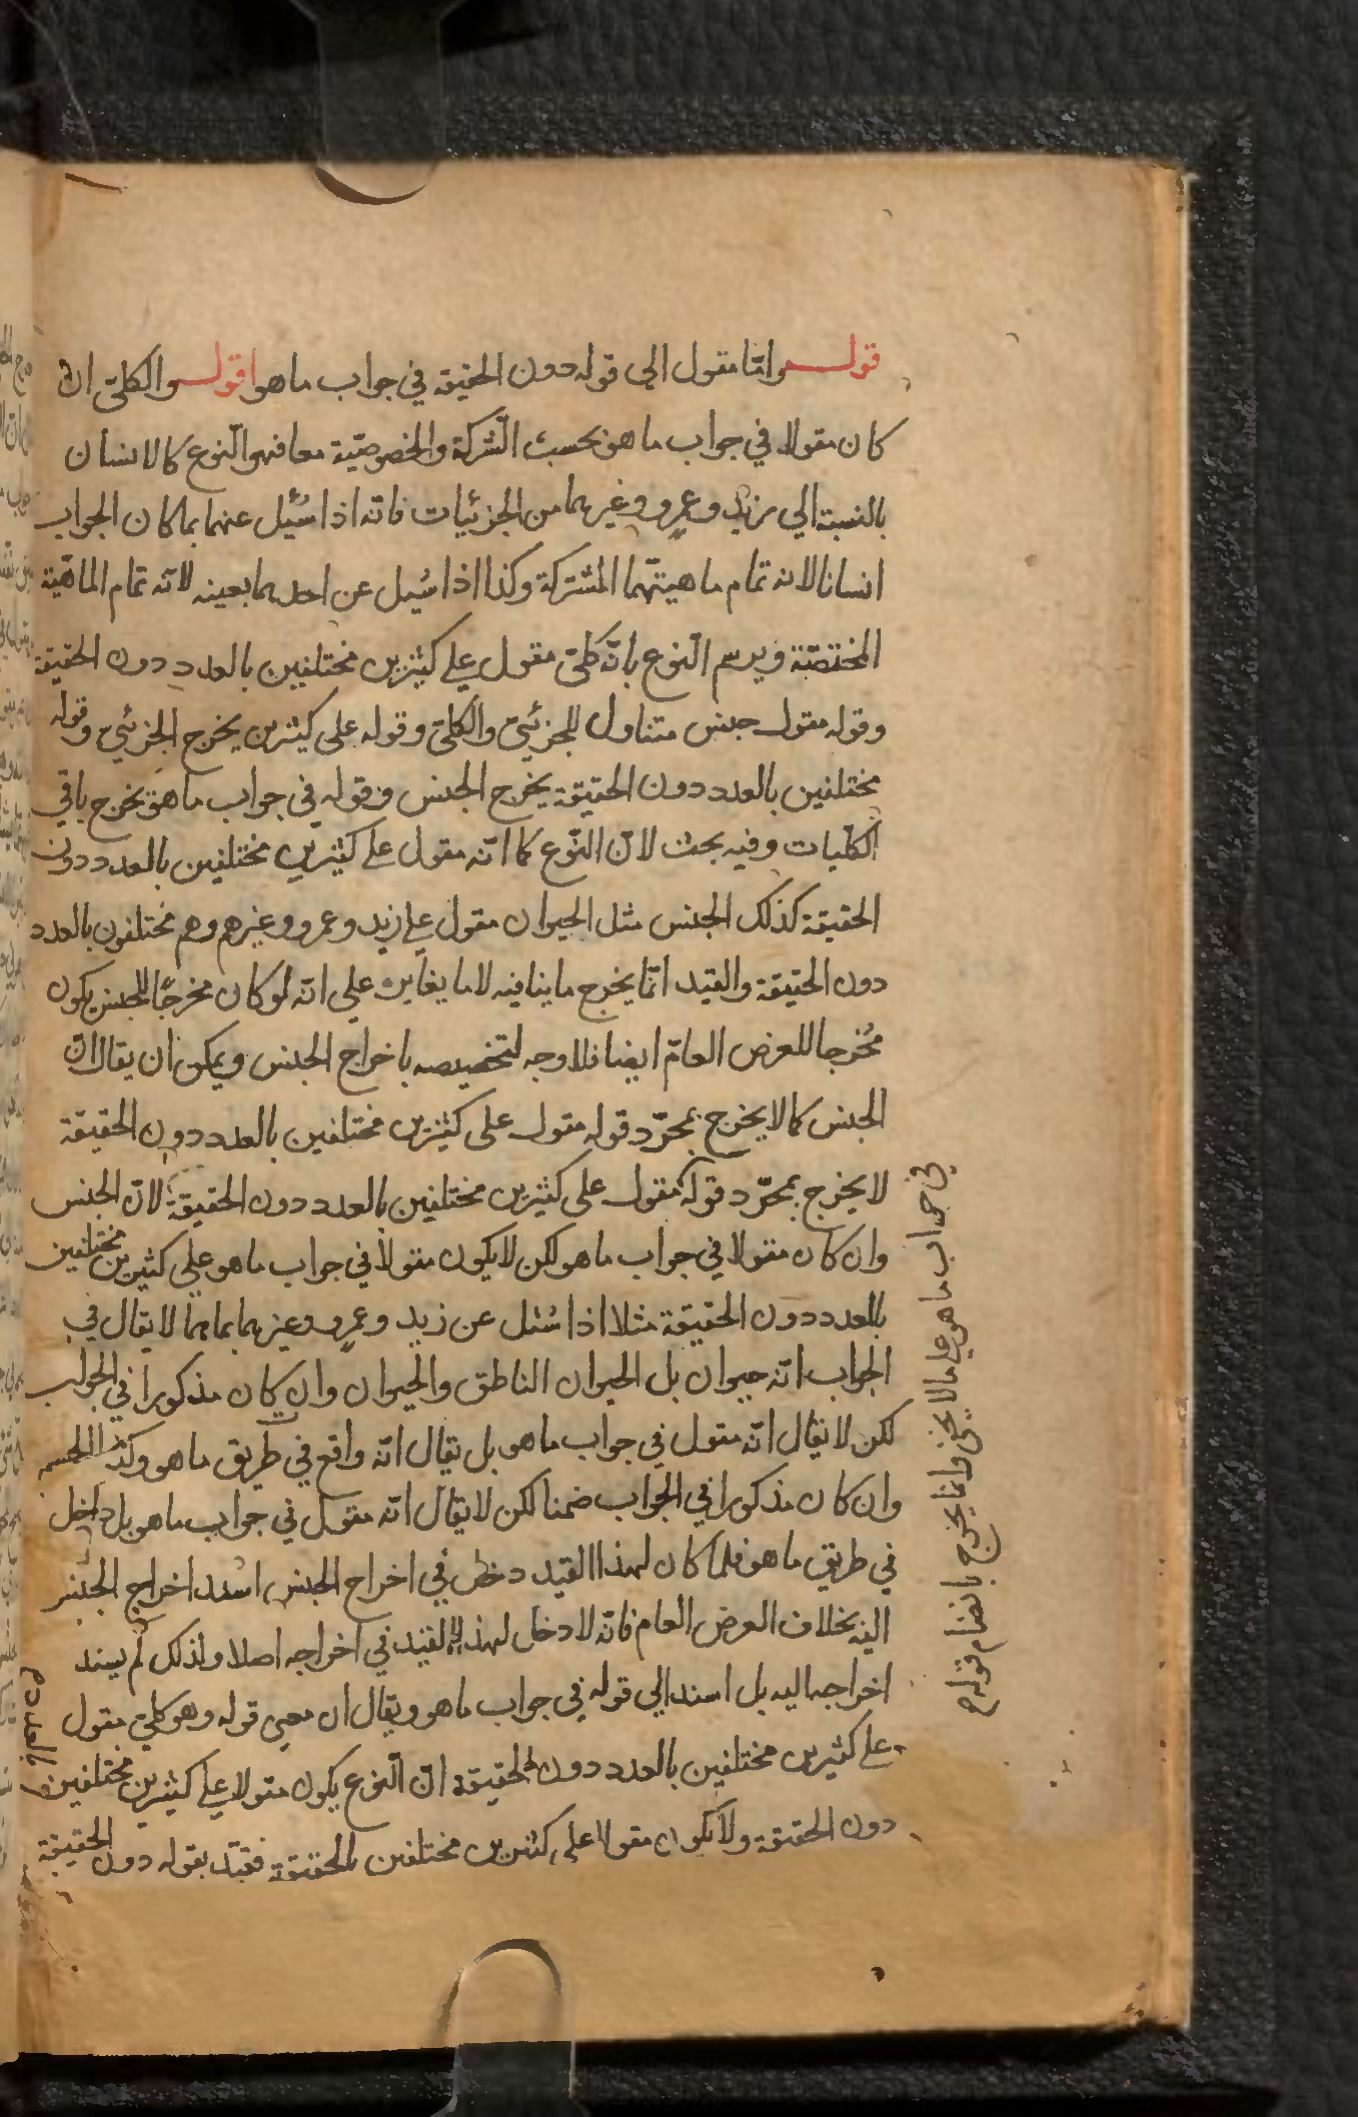 قوله واما مقول الى قوله دون الحقيقة في جواب ما هو اقول والكلي ان
كان مقولا في جواب ما هو بحسب الشركة والخصوصية معا فهو النوع كالانسان
بالنسبة الي زيد وعمرو وغيرهما من الجزئيات فانه اذا سُئيل عنهما بما كان الجواب
انسانا لانه تمام ماهيتهما المشتركة وكذا اذا سُيل عن احدهما بعينه لانه تمام الماهية
المختصة ويرسم النوع بانه كلي مقول علي كثيرين مختلفين بالعدد دون الحقيقة
وقوله مقول جنس متناول للجزئي والكلي وقوله على كثيرين يخرج الجزئي وقوله
مختلفين بالعدد دون الحقيقة يخرج الجنس وقوله في جواب ما هو يخرج باقي
الكليات وفيه بحث لان النوع كما انه مقول علے كثيرين مختلفين بالعدد دون
الحقيقة كذلك الجنس مثل الحيوان مقول علي زيد وعمرو وغيرهم وهم مختلفون بالعدد
دون الحقيقة والقيد انما يخرج ما ينافيه لا ما يغايره علي انه لو كان مخرجًا للجنس يكون
مُخرجا للعرض العامّ ايضا فلا وجه لتخصيصه باخراج الجنس ويمكن ان يقال ان
الجنس كما لا يخرج بمجرّد قوله مقول على كثيرين مختلفين بالعدد دون الحقيقة
لا يخرج بمجرّد قوله مقول على كثيرين مختلفين بالعدد دون الحقيقة لان الجنس
وان كان مقولا في جواب ما هو لكن لا يكون مقولا في جواب ما هو علي كثيرين مختلفين
بالعدد دون الحقيقة مثلا اذا سُئل عن زيد وعمرو وغيرهما بما هما لا يقال في
الجواب انه حيوان بل الحيوان الناطق والحيوان وان كان مذكورا في الجواب
لكن لا يقال انه مقول في جواب ما هو بل يقال انه واقع في طريق ما هو وكذا الجسم
وان كان مذكورا في الجواب ضمنا لكن لا يقال انه مقول في جواب ما هو بل داخل
في طريق ما هو فلما كان لهذا القيد دخل في اخراج الجنس اسند اخراج الجنس
اليه بخلاف العرض العام فانه لا دخل لهذا القيد في اخراجه اصلا ولذلك لم يسند
اخراجه اليه بل اسند الي قوله في جواب ما هو ويقال ان معنى قوله وهو كلي مقول
علے كثيرين مختلفين بالعدد دون الحقيقة انّ النوع يكون مقولا علے كثيرين مختلفين
بالعدد
دون الحقيقة ولا يكون مقولا على كثيرين مختلفين بالحقيقة فقيد بقوله دون الحقيقة
في جواب ما هو علي ما لا يخفى وانما يخرج بانضمام قوله